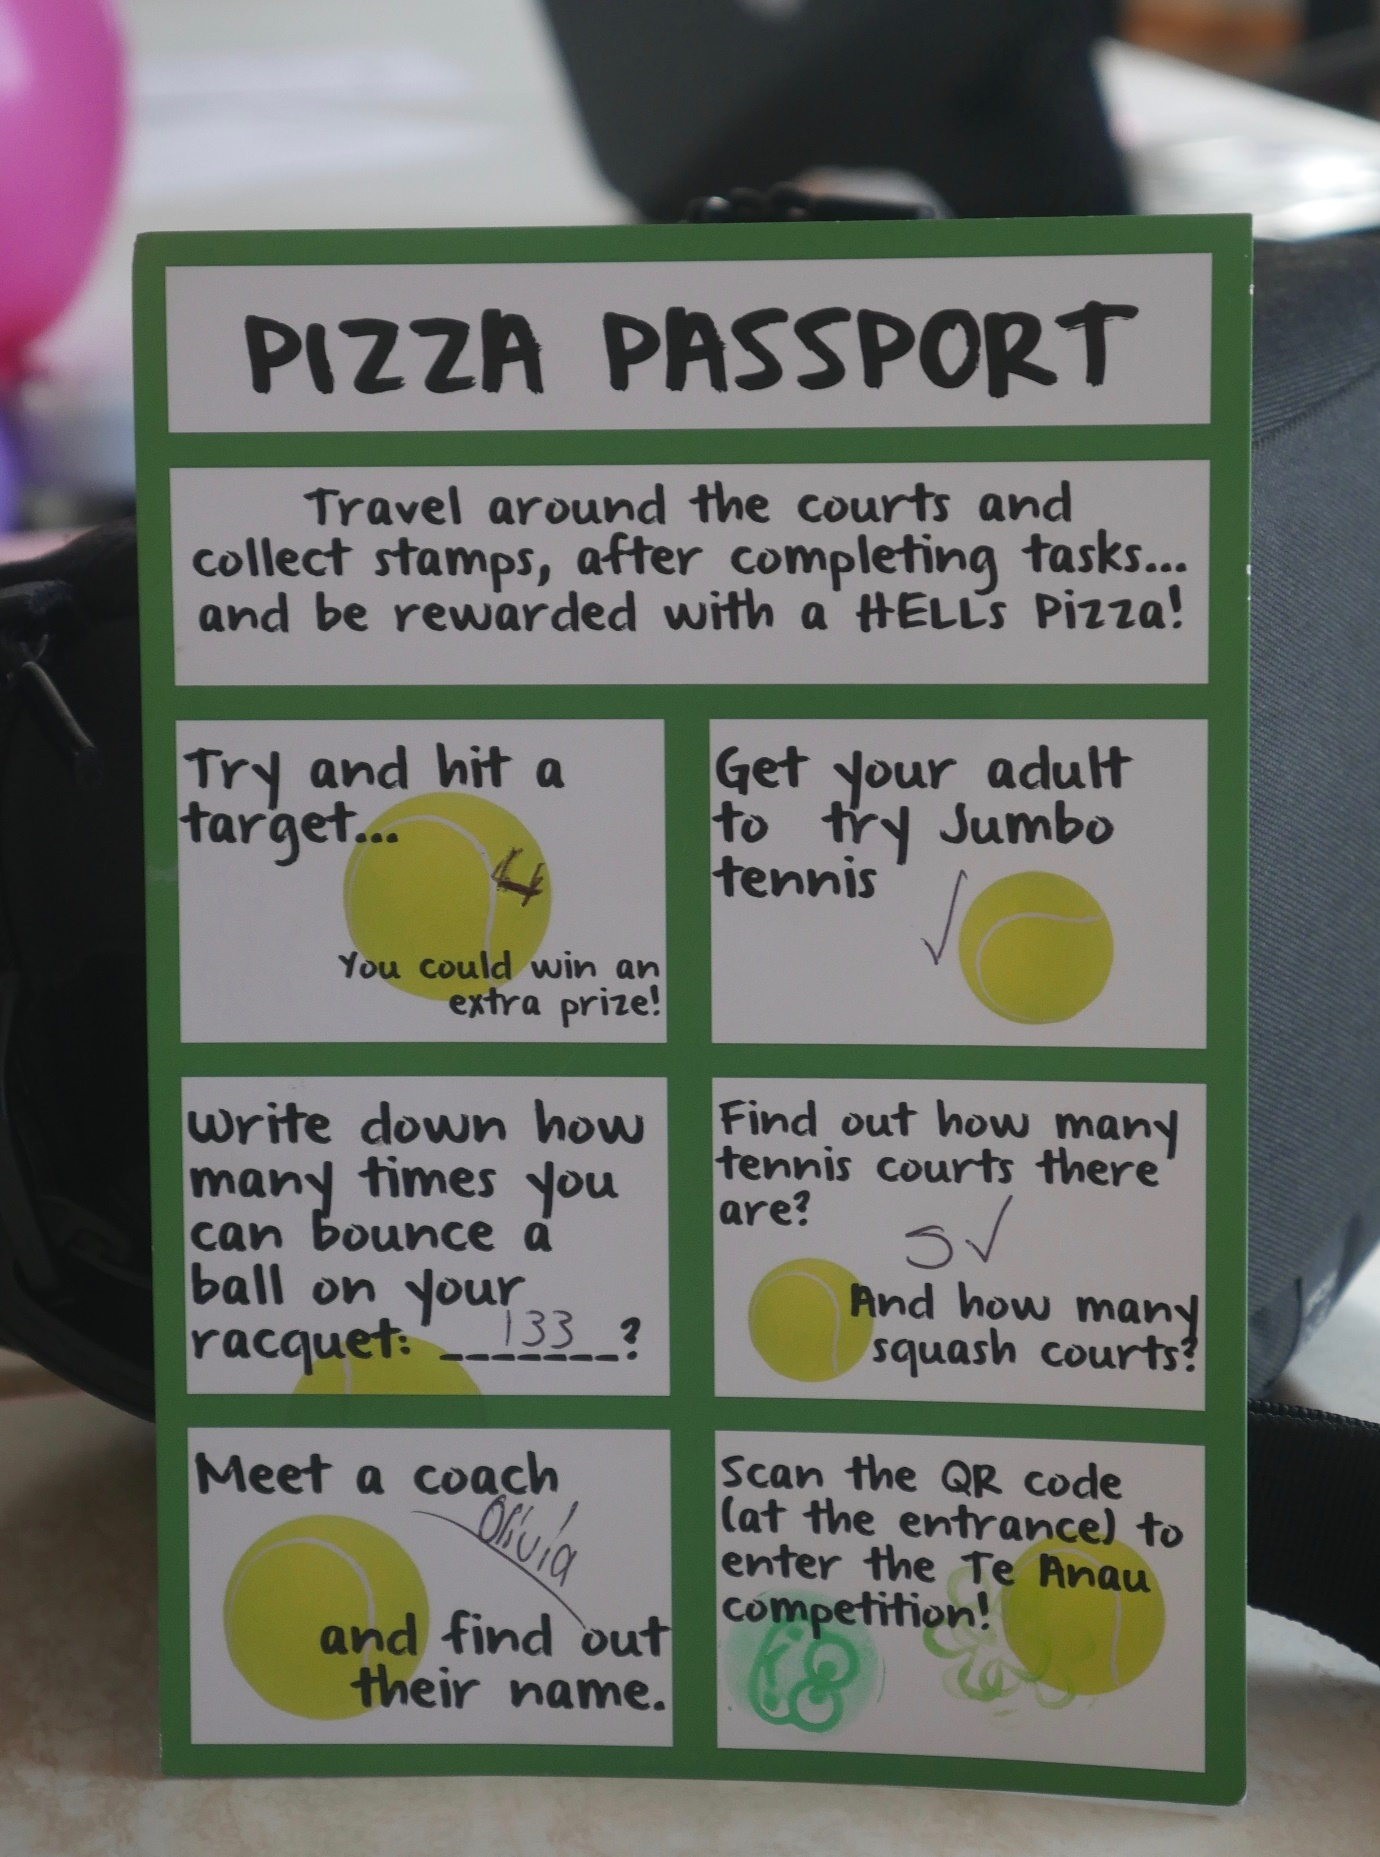 PIZZA PASSPORT
Travel around the courts and
collect stamps, after completing tasks...
and be rewarded with a HELLs Pizza!
Try and hit a
target...
4
You could win an
extra prize!
Get your adult
to try Jumbo
tennis
✓
Write down how
many times you
can bounce a
ball on your
racquet: 133 ?
Find out how many
tennis courts there
are?
5 ✓
And how many
squash courts?
Meet a coach
Olivia
and find out
their name.
Scan the QR code
(at the entrance) to
enter the Te Anau
competition!